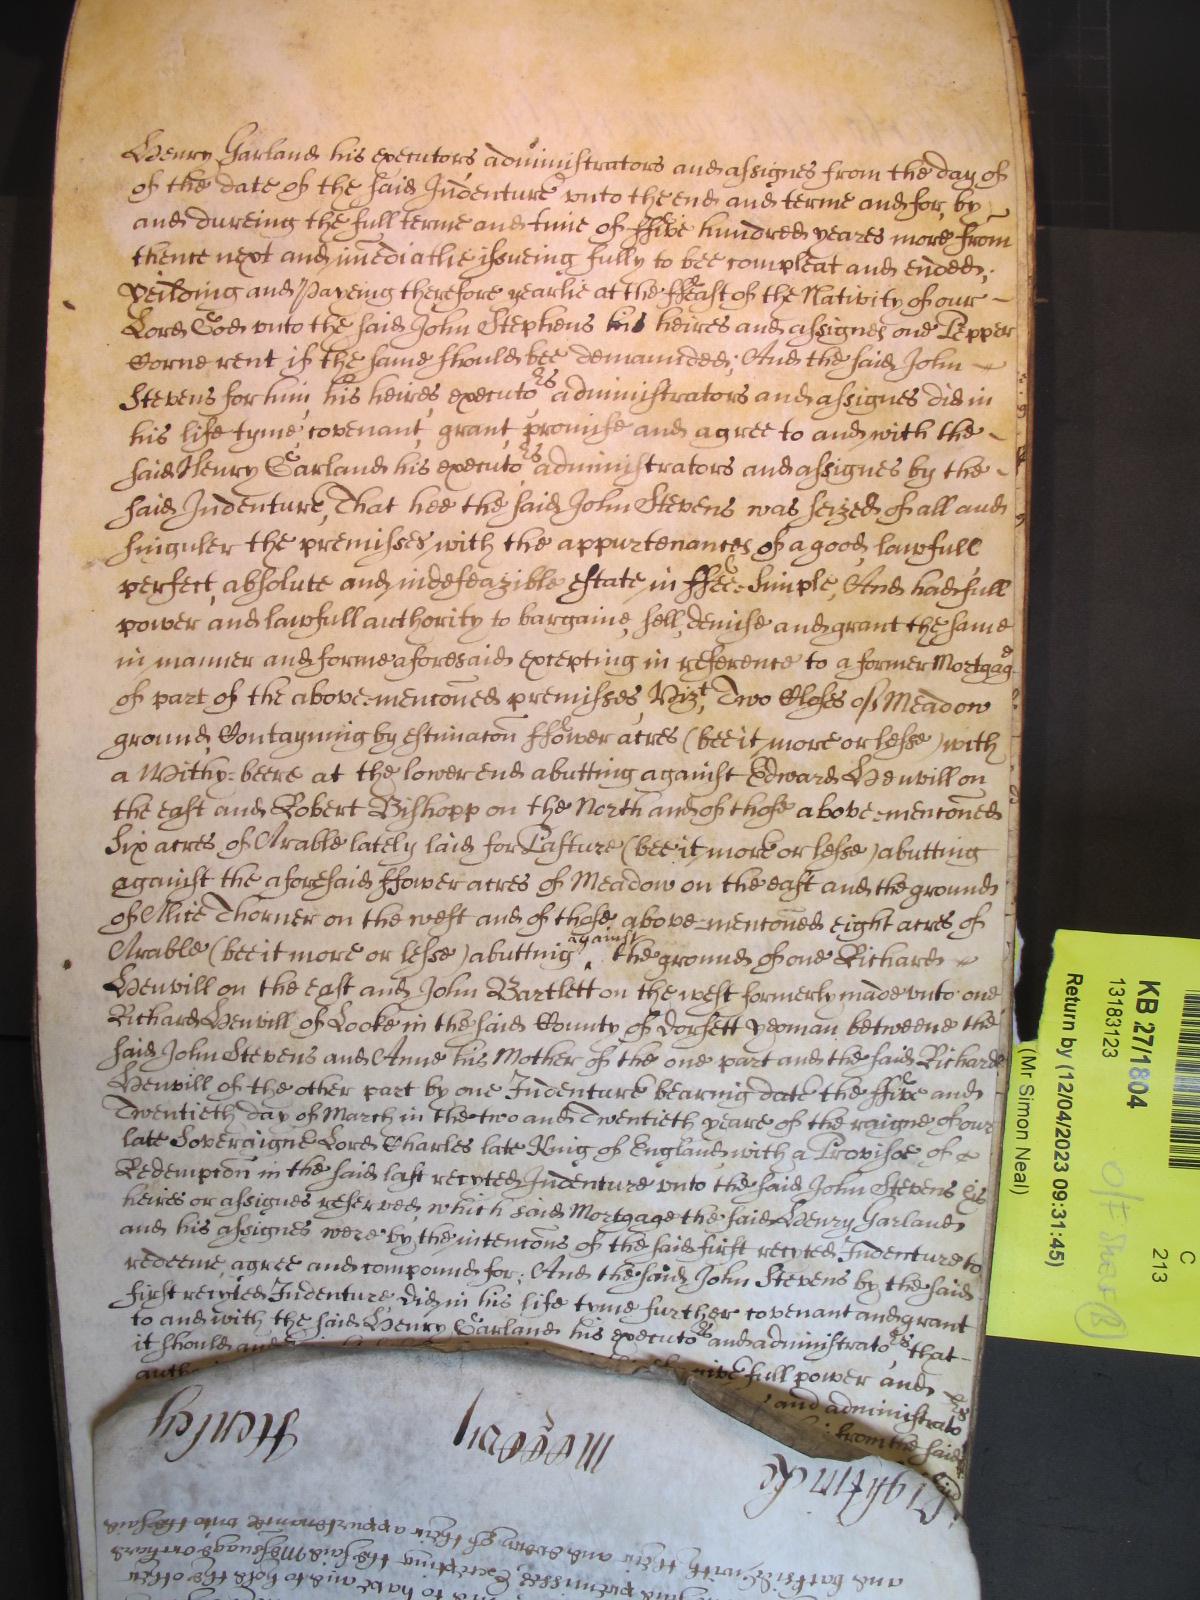 Henry Garland his executors administrators and assignes from the day of
of the date of the said Indenture vnto the end and terme and for, by
and dureing the full terme and time of ffive hundred yeares more from
thence next and imediatlie issueing fully to bee compleat and ended;
Yeilding and Payeing therefore yearlie at the ffeast of the Nativity of our
Lord God vnto the said John Stephens his heires and assignes one Pepper
Corne rent if the same should bee demaunded; And the said John
Stevens for him, his heires, executors administrators and assignes did in
his life tyme, covenant, grant, promise and agree to and with the
said Henry Garland his executors administrators and assignes by the
said Indenture, That hee the said John Stevens was seized of all and
singuler the premisses with the appurtenances of a good, lawfull
perfect, absolute and indefeazible estate in ffee Simple, And had full
power and lawfull authority to bargaine, sell, demise and grant the same
in manner and forme aforesaid excepting in reference to a former Mortgage
of part of the above mentoned premisses, Vizt, Two Closes of Meadow
ground, Contayning by estimacon ffower acres (bee it more or lesse) with
a Withy-beere at the lower end abutting against Edward Henvill on
the east and Robert Bishopp on the North and of those above-mentoned
Six acres of Arable lately laid for Pasture (bee it more or lesse) abutting
against the aforesaid ffower acres of Meadow on the east and the ground
of Alice Thorner on the west and of those above-mentoned eight acres of
Arable (bee it more or lesse) abutting against the ground of one Richard
Henvill on the east and John Bartlett on the west formerly made vnto one
Richard Henvill of Looke in the said County of Dorsett yeoman betweene the
said John Stevens and Anne his Mother of the one part and the said Richard
Henvill of the other part by one Indenture bearing date the ffive and
Twentieth day of March in the two and Twentieth yeare of the raigne of our
late Soveraigne Lord Charles late King of England with a Provisoe of
Redempcon in the said last recyted Indenture vnto the said John Stevens his
heires or assignes reserved, which said Mortgage the said Henry Garland
and his assignes were by the intencons of the said first recyted Indenture to
redeeme, agree and compound for; And the said John Stevens by the said
first recyted Indenture, did in his life tyme further covenant and grant
to and with the said Henry Garland his executors and administrators that
it should and
full power and
and administrators
from the said
KB 27/1804
13183123
Return by (12/04/2023 09:31:45)
(Mr Simon Neal)
C
213
Henley
and batkside, with their and every of their appurtenances vnto the said
premisses Excepting the said Messuage, orchard
and to have and to hold the other